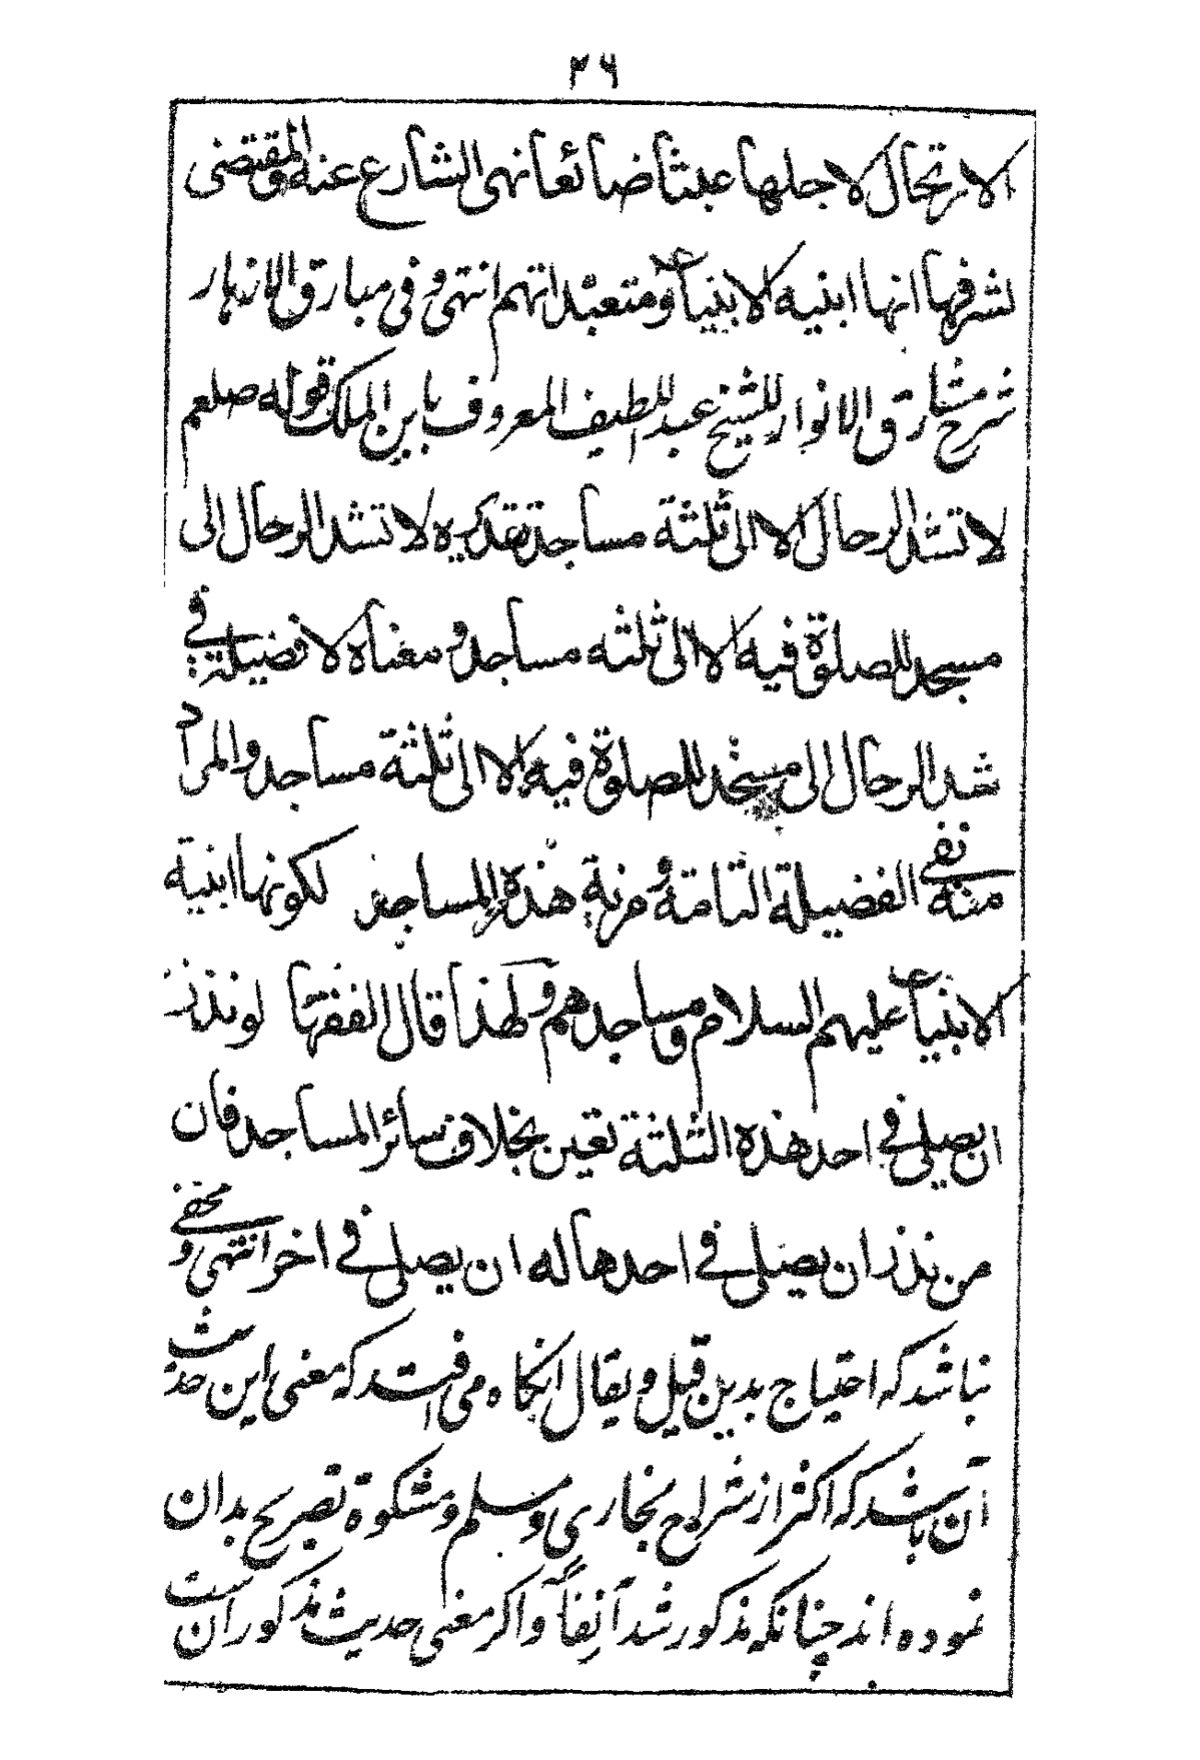 ۲۶
الارتحال لاجلها عبثا ضائعا نهى الشارع عنه والمقتضى
لشرفها انها ابنيه الانبياء ومتعبداتهم انتهى وفي مبارق الازهار
شرح مشارق الانوار للشيخ عبد اللطيف المعروف بابن الملك قوله صلعم
لا تشد الرحال الا الى ثلثة مساجد تقديره لا تشد الرحال الى
مسجد للصلوة فيه الا الى ثلثه مساجد و معناه لا فضيلة في
شد الرحال الى مسجد للصلوة فيه الا الى ثلثة مساجد والمراد
منه نفى الفضيلة التامة و مزية هذه المساجد لكونها ابنية
الانبياء عليهم السلام ومساجدهم ولهذا قال الفقهاء لو نذر
ان يصلى في احد هذه الثلثة تعين بخلاف سائر المساجد فان
من نذر ان يصلى في احدها له ان يصلى في اخر انتهى و مخفى
نباشد كه احتياج بدين قيل و يقال انگاه مى افتد كه معنى اين حديث
آن باشد كه اكثر از شراح بخارى و مسلم و مشكوة تصريح بدان
نموده اند چنانكه مذكور شد آنفاً و اگر معنى حديث مذكور آن ست